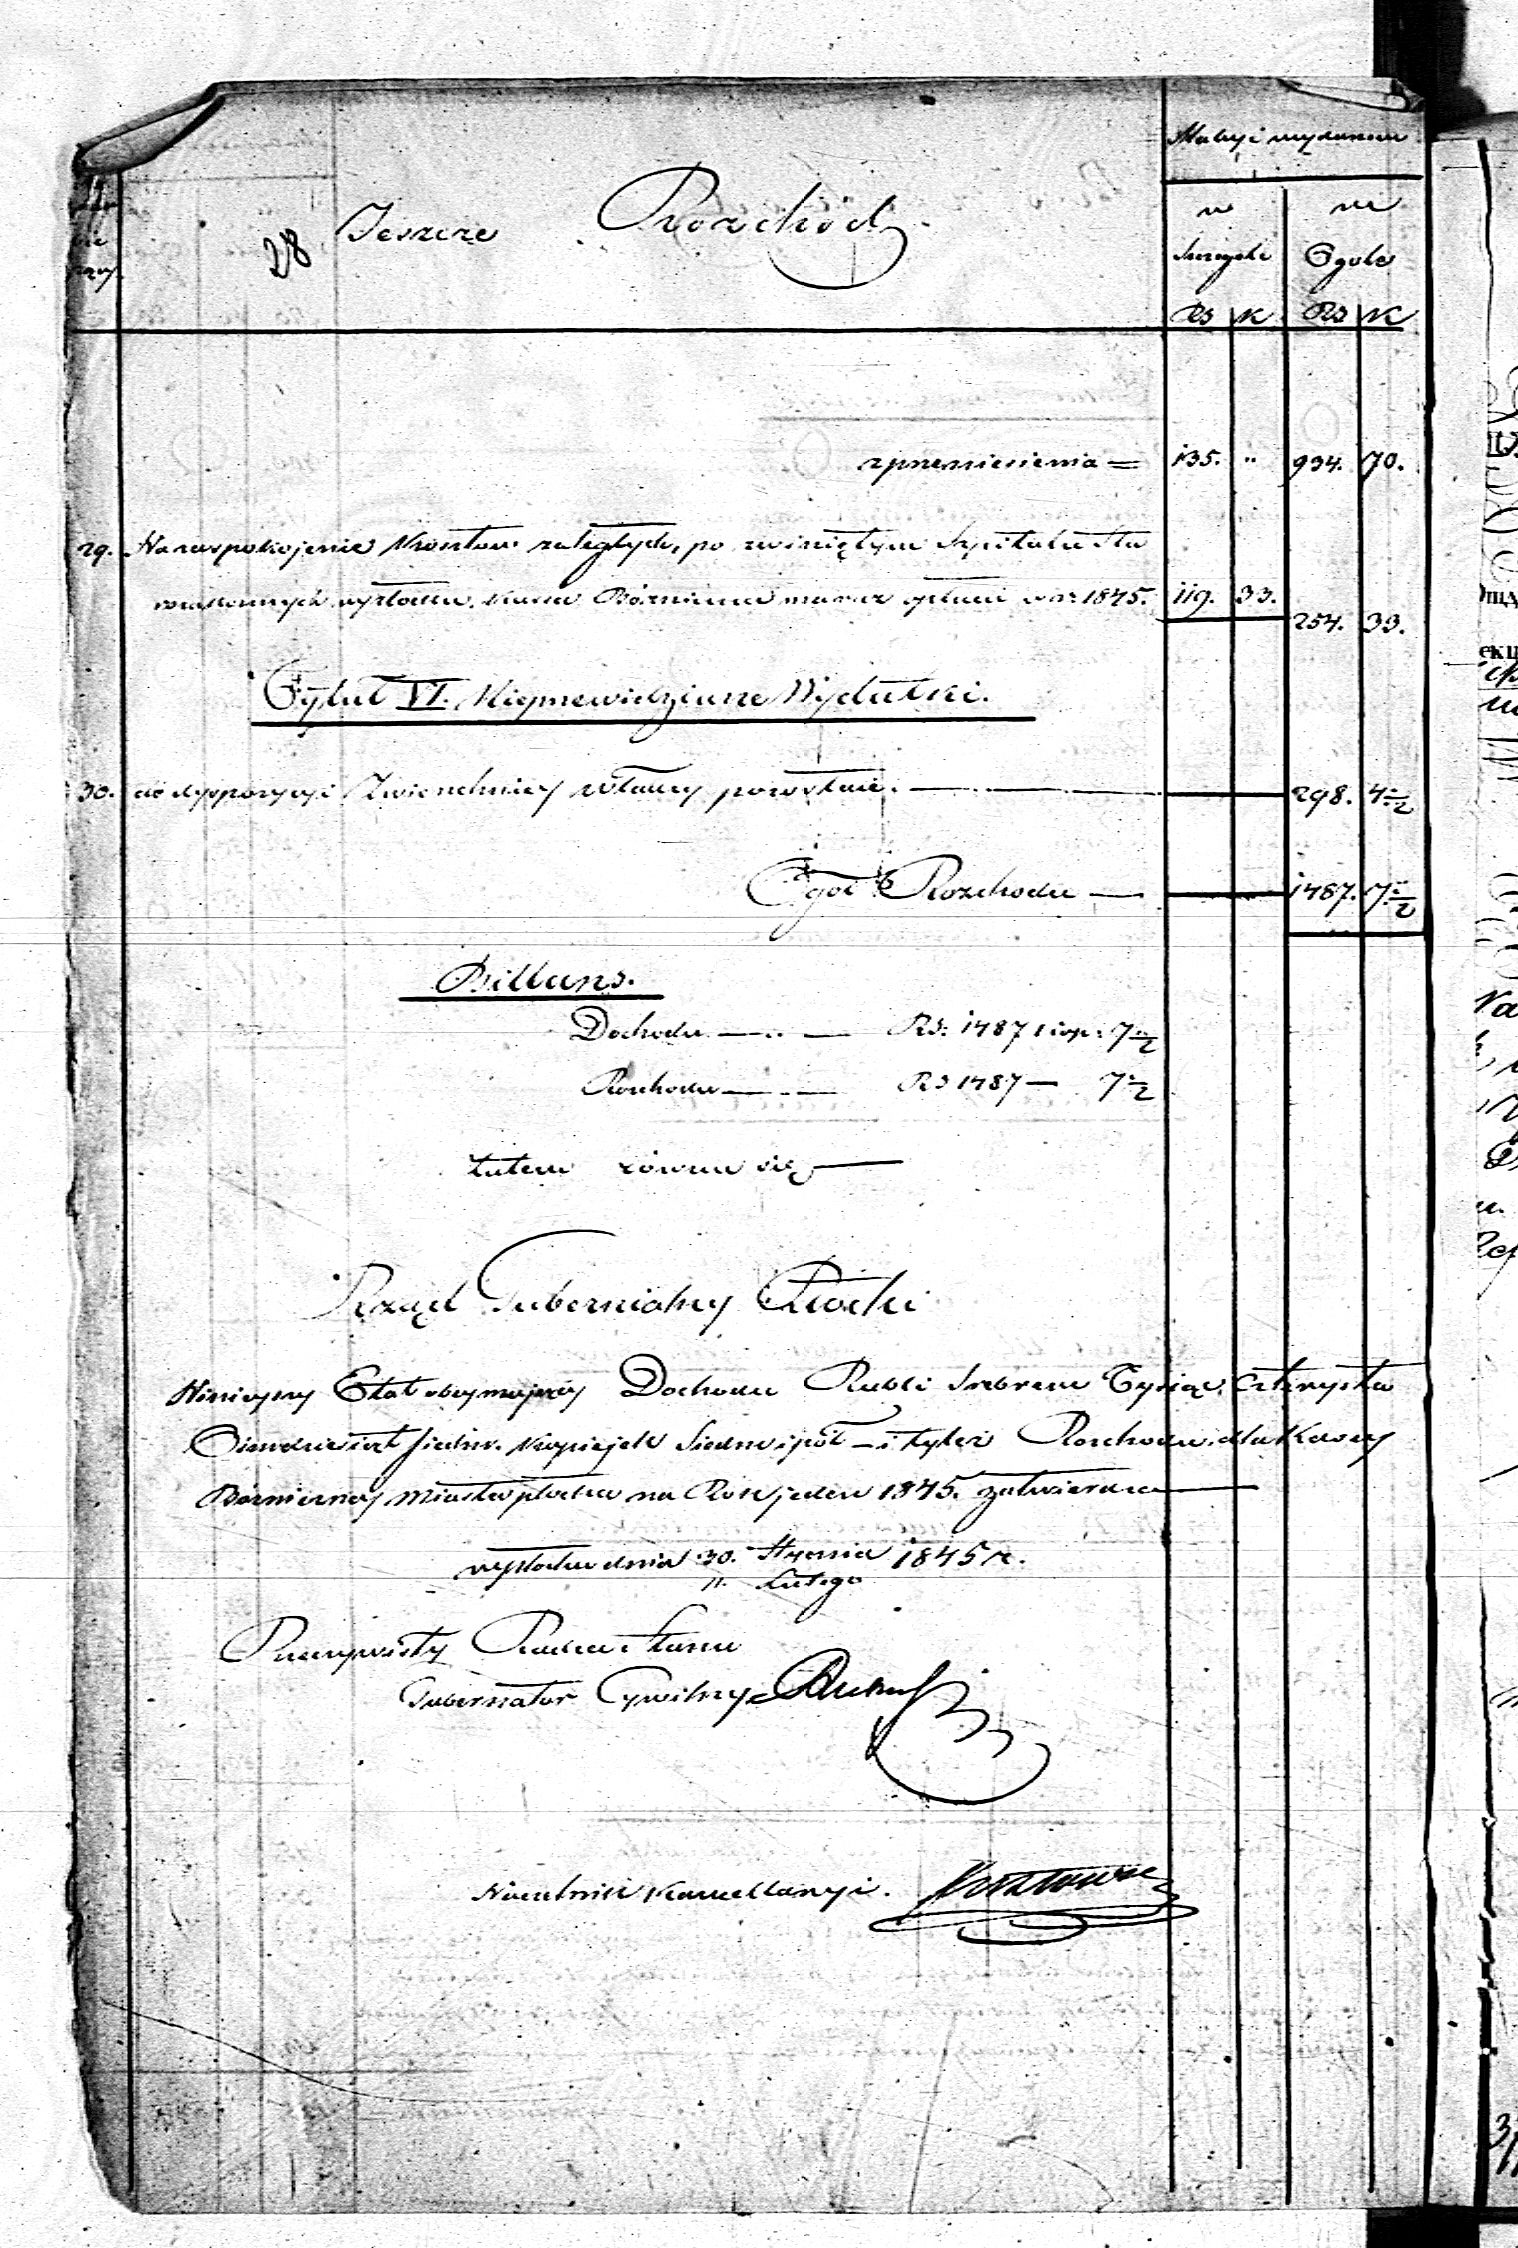 28 Jeszcze Rozchód
Ma być wydane
w w
Szczególe Ogóle
Rs K Rs K
z przeniesienia = 135. " 934. 70.
29. Na zaspokojenie Kosztów zaległych, po zwiniętym Szpitalu Sta
rozakonnych w Płocku, Kassa Bóżnicza ma w r. 1845. 119. 33.
254. 33.
Tytuł VI. Nieprzewidziane Wydatki.
30. do dyspozycyi Zwierzchniey władzy pozostaie. 298. 4 ½
Ogół Rozchodu 1487. 7 ½
Billans.
Dochodu Rs: 1487 kop: 7 ½
Rozchodu Rs 1487 — 7 ½
zatem równa się
Rząd Gubernialny Płocki
Ninieyszy Etat obeymujący Dochodu Rubli Srebrem Tysiąc Czterysta
Ośmdziesiąt Siedm. Kopiejek Siedm i pół — i tyleż Rozchodu dla Kassy
Bóżniczney Miasta Płocka na Rok jeden 1845. zatwierdza
w Płocku dnia 30. Stycznia 1845 r.
11. Lutego
Rzeczywisty Radca Stanu
Gubernator Cywilny
Naczelnik Kancellaryi.